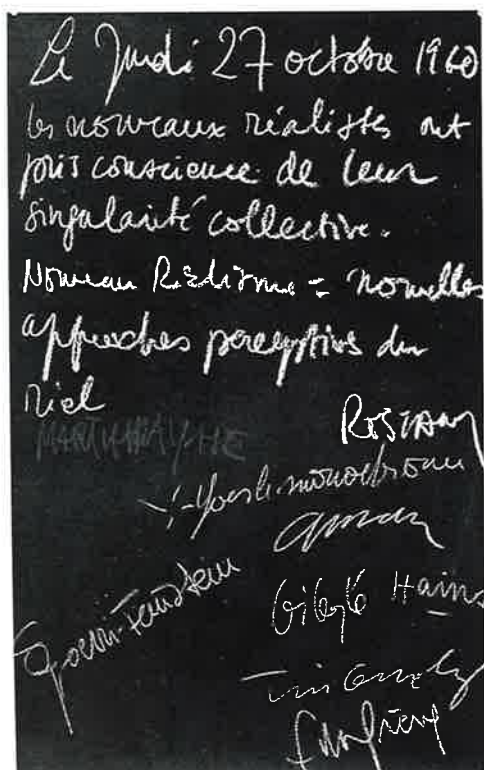 Le Jeudi 27 octobre 1960
les nouveaux réalistes ont
pris conscience de leur
singularité collective.
Nouveau Réalisme = nouvelles
approches perceptives du
réel
MARTIAL RAYSSE
RESTANY
Yves le monochrome
Arman
Spoerri-Feinstein
Villeglé Hains
Tinguely
Dufrêne